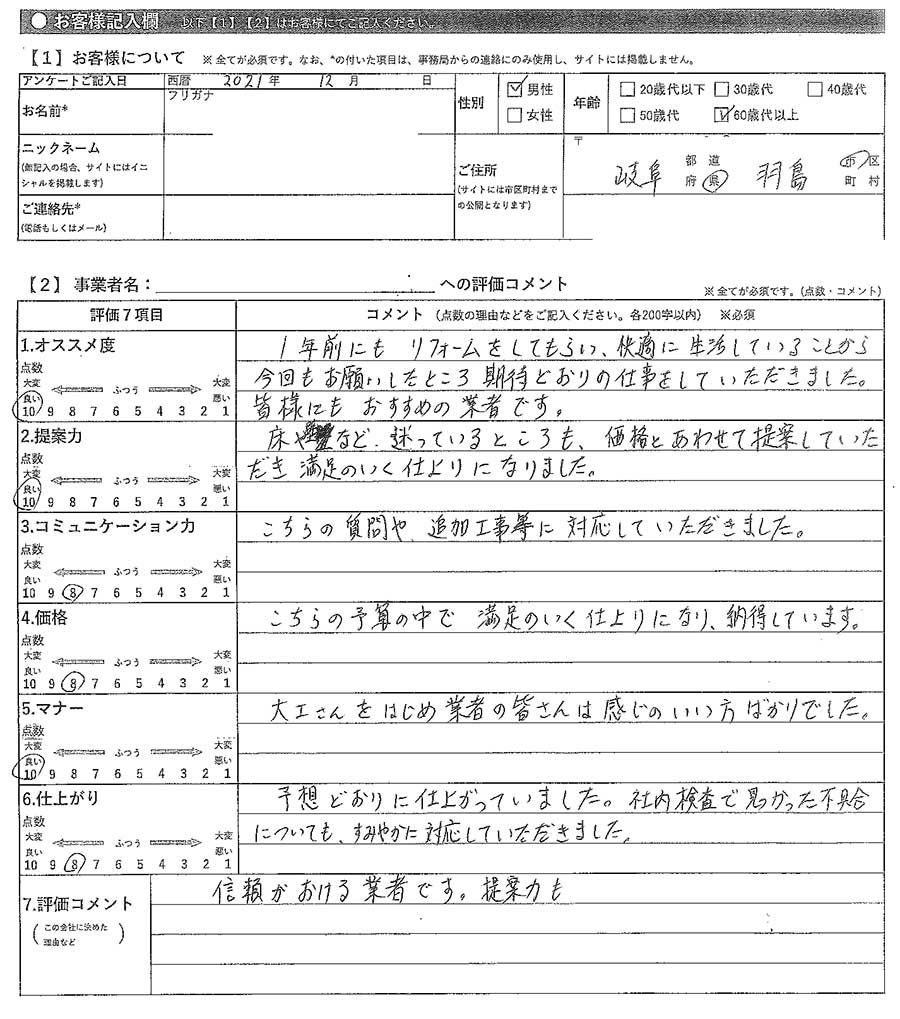 ● お客様記入欄 以下【1】【2】はお客様にてご記入ください。
【1】お客様について ※全てが必須です。なお、*の付いた項目は、事務局からの連絡にのみ使用し、サイトには掲載しません。
アンケートご記入日 西暦 2021年 12月 日
お名前*
フリガナ
性別
男性
女性
年齢
20歳代以下 30歳代 40歳代
50歳代 60歳代以上
ニックネーム
(無記入の場合、サイトにはイニ
シャルを掲載します)
ご連絡先*
(電話もしくはメール)
ご住所
(サイトには市区町村まで
の公開となります)
〒
岐阜 都道府県 羽島 市区町村
【2】事業者名: への評価コメント
※全てが必須です。(点数・コメント)
評価7項目 コメント (点数の理由などをご記入ください。各200字以内) ※必須
1.オススメ度
点数
大変 ふつう 大変
良い 悪い
10 9 8 7 6 5 4 3 2 1
1年前にも リフォームをしてもらい、快適に生活していることから
今回もお願いしたところ期待どおりの仕事をしていただきました。
皆様にも おすすめの業者です。
2.提案力
点数
大変 ふつう 大変
良い 悪い
10 9 8 7 6 5 4 3 2 1
床や など、迷っているところも、価格とあわせて提案していた
だき満足のいく仕上りになりました。
3.コミュニケーション力
点数
大変 ふつう 大変
良い 悪い
10 9 8 7 6 5 4 3 2 1
こちらの質問や、追加工事等に対応していただきました。
4.価格
点数
大変 ふつう 大変
良い 悪い
10 9 8 7 6 5 4 3 2 1
こちらの予算の中で 満足のいく仕上りになり、納得しています。
5.マナー
点数
大変 ふつう 大変
良い 悪い
10 9 8 7 6 5 4 3 2 1
大工さんをはじめ業者の皆さんは感じのいい方ばかりでした。
6.仕上がり
点数
大変 ふつう 大変
良い 悪い
10 9 8 7 6 5 4 3 2 1
予想どおりに仕上がっていました。社内検査で見つかった不具合
についても、すみやかに対応していただきました。
7.評価コメント
(この会社に決めた
理由など)
信頼がおける業者です。提案力も